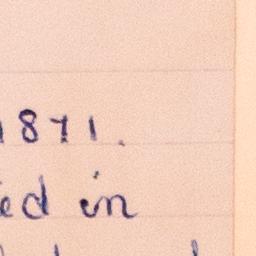 1871.
ed in